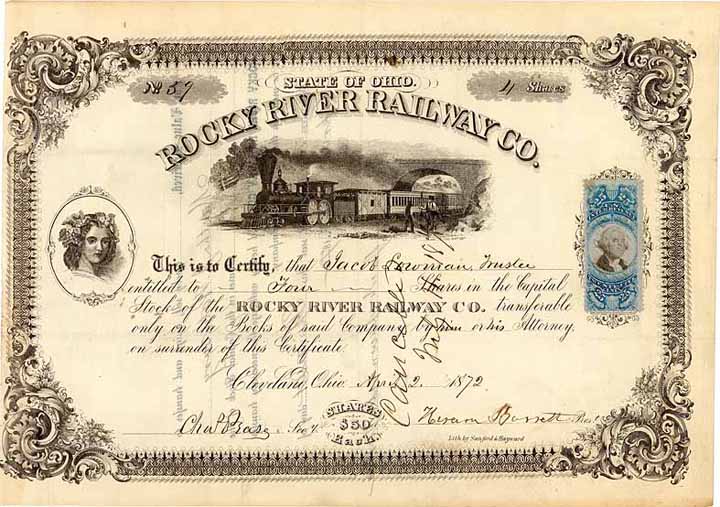 STATE OF OHIO.
No 59
4 Shares
ROCKY RIVER RAILWAY CO.
This is to Certify, that Jacob Lowman, Trustee
entitled to Four Shares in the Capital
Stock of the ROCKY RIVER RAILWAY CO. transferable
only on the Books of said Company by him or his Attorney
on surrender of this Certificate.
Cleveland, Ohio. Apr 2 1872
Cancelled
Chas Pease Secy.
SHARES
$50
EACH.
Hiram Barrett Prest
Lith by Sanford & Hayward